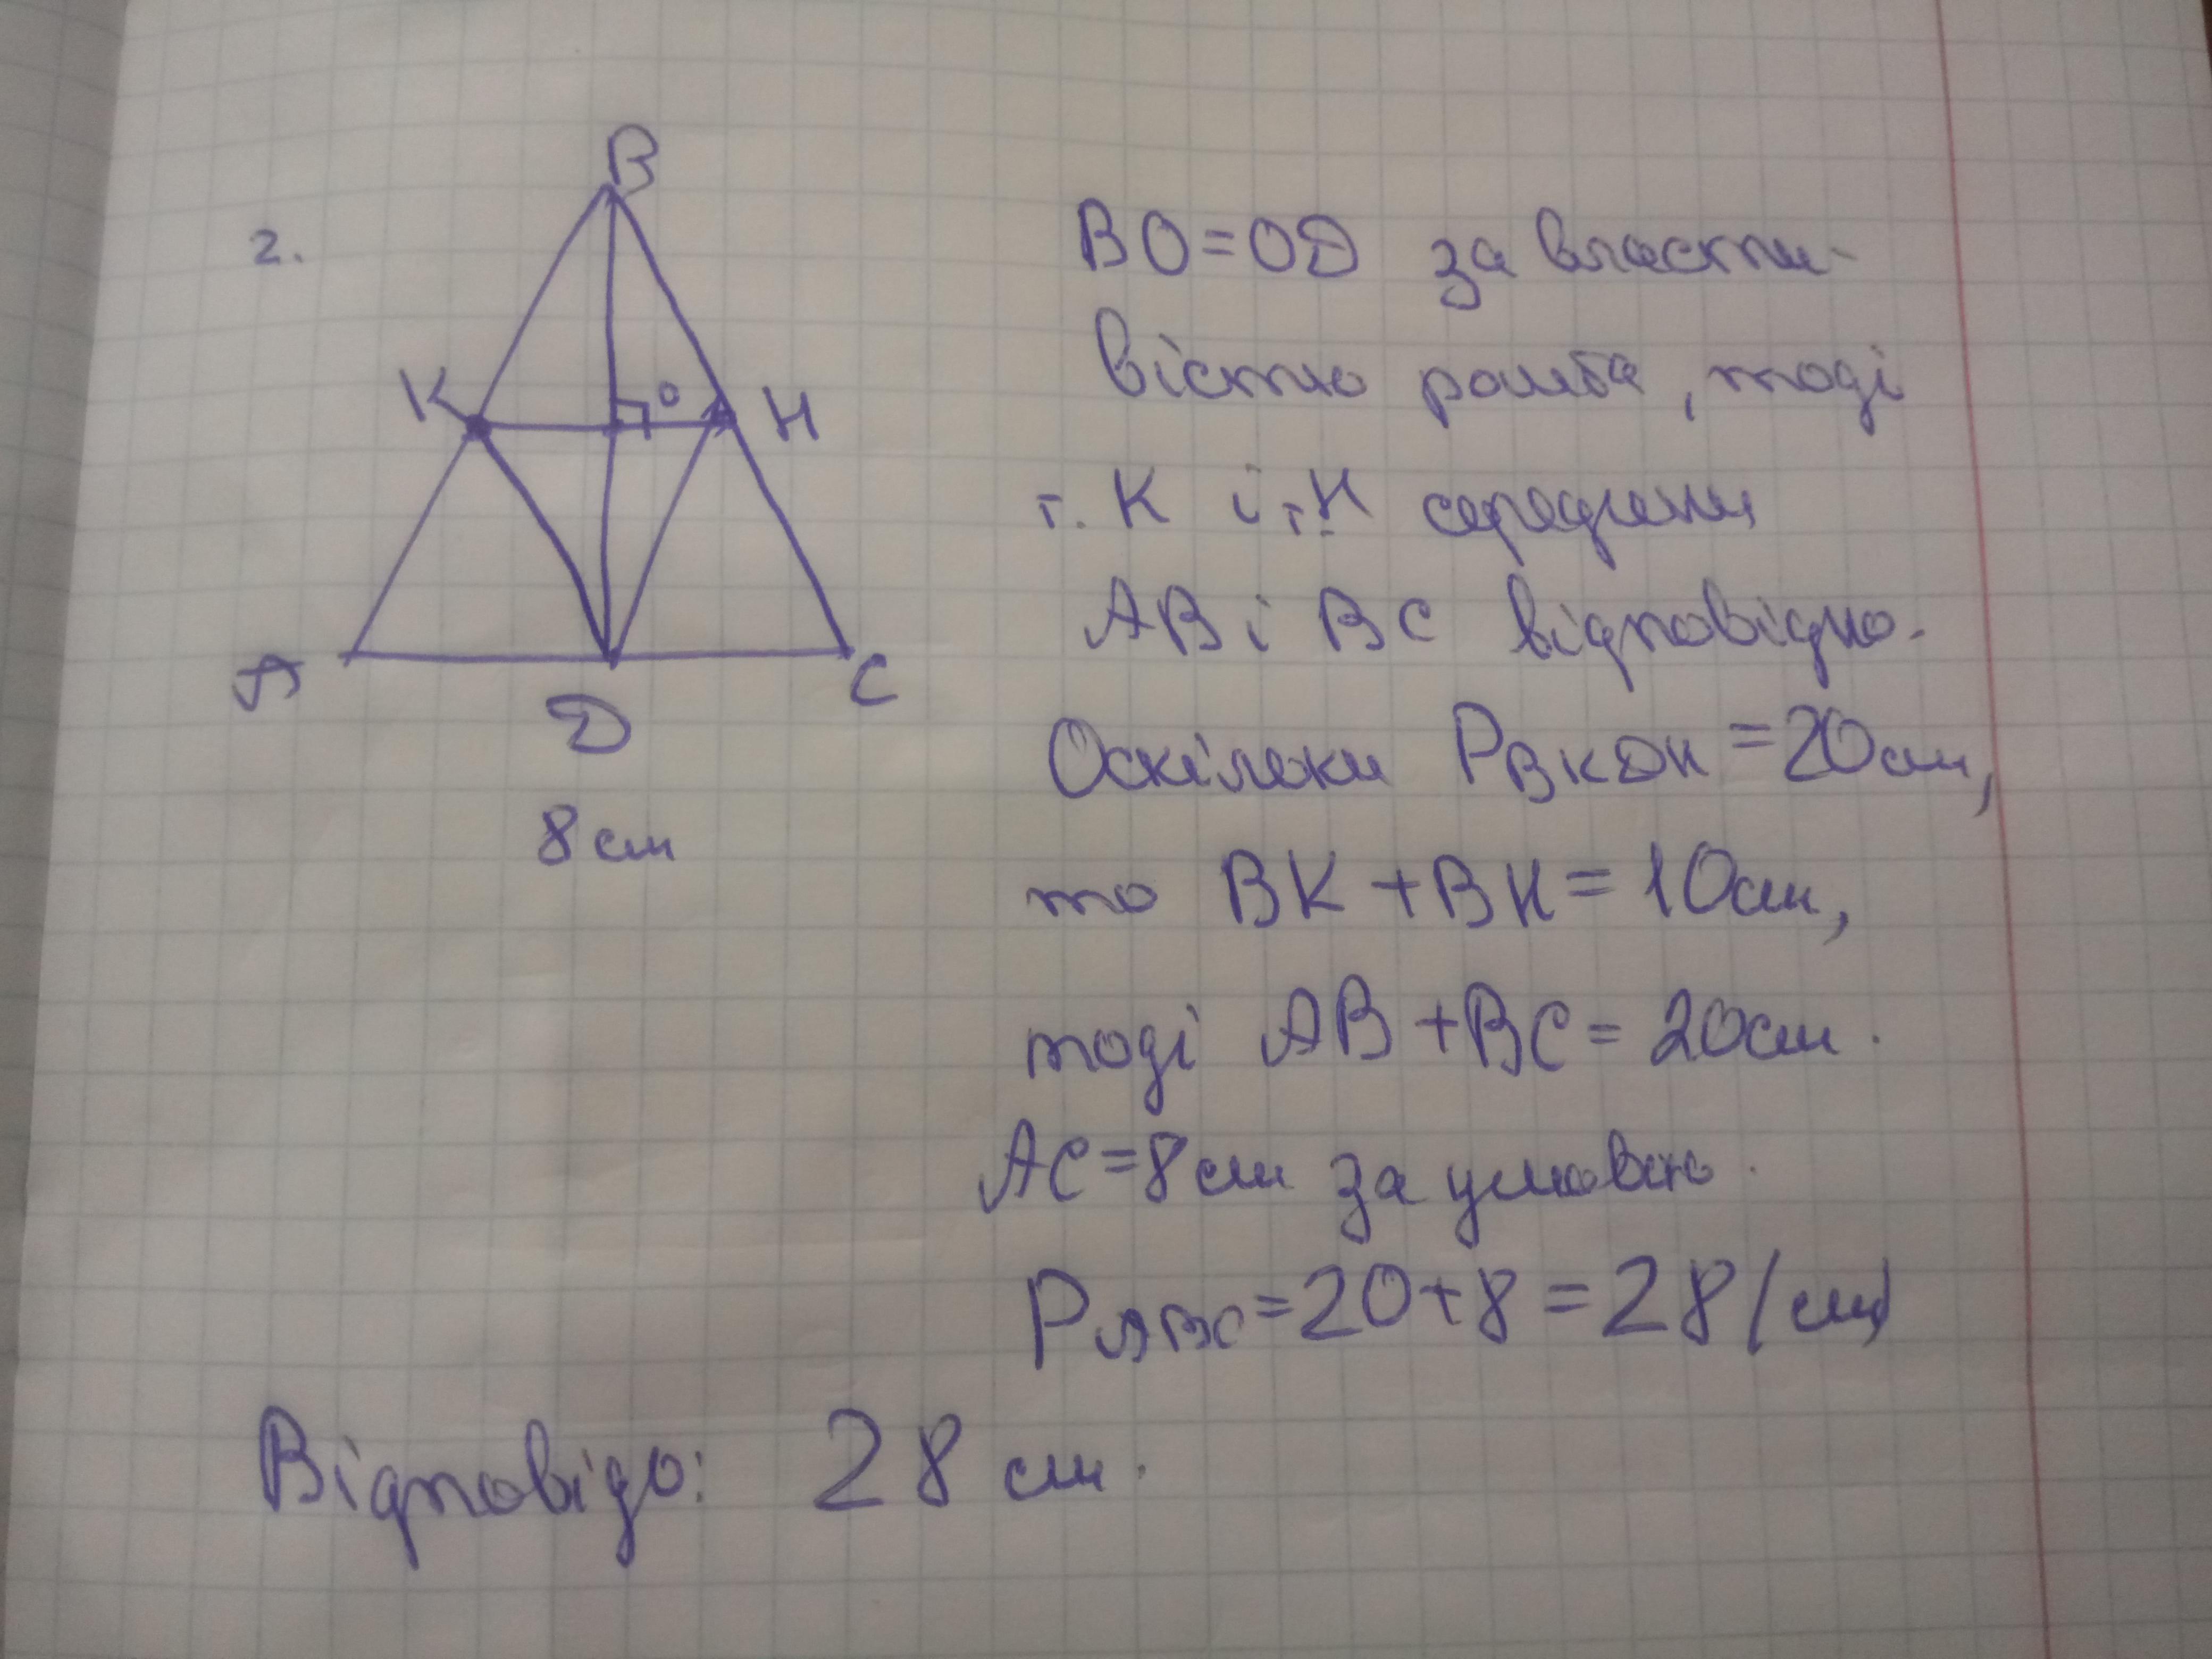 2.
B
K
O
H
A
D
C
8 см
BO=OD за власти-
вістю ромба, тоді
т. K і т. H середини
AB і BC відповідно.
Оскільки P BKDH = 20 см,
то BK + BH = 10 см,
тоді AB + BC = 20 см.
AC = 8 см за умовою.
P ABC = 20 + 8 = 28 (см)
Відповідь: 28 см.